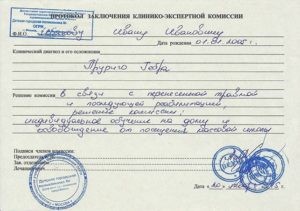 ПРОТОКОЛ ЗАКЛЮЧЕНИЯ КЛИНИКО-ЭКСПЕРТНОЙ КОМИССИИ
Ф.И.О. Иванову Ивану Ивановичу
Дата рождения 01.01.2005 г.
Клинический диагноз и его осложнения
Ребра
Решение комиссии в связи с перенесенной травмой
и последующей реабилитацией,
решение комиссии,
индивидуальное обучение на дому и
освобождение от посещения массовой школы
Подписи членов комиссии:
Председатель
Зав. отделением
Лечащий
Дата